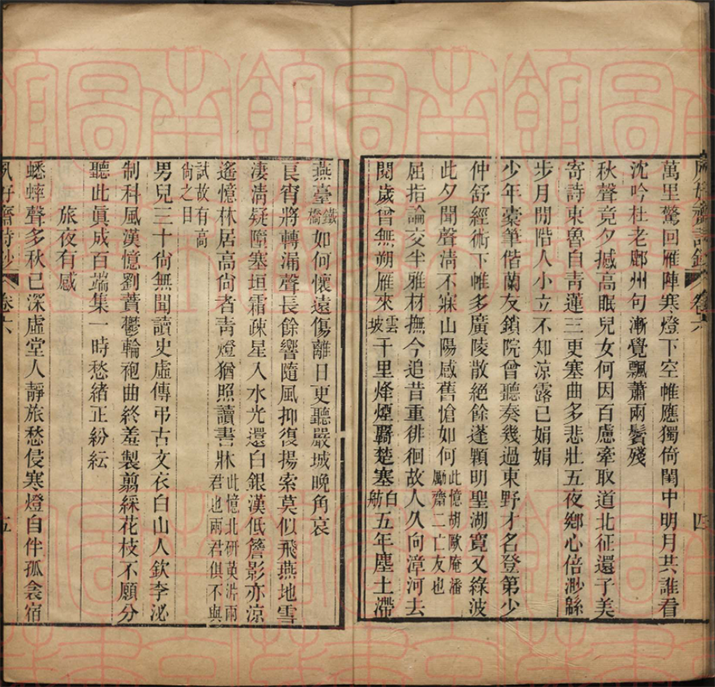 萬里驚回雁陣寒燈下空帷應獨倚閨中明月共誰看
沈吟杜老鄜州句漸覺飄蕭兩鬢殘
秋聲竟夕撼高眠兒女何因百慮牽取道北征還子美
寄詩東魯自青蓮三更寒曲多悲壯五夜鄉心倍渺緜
步月閒階人小立不知涼露已娟娟
少年橐筆偕蘭友鎖院曾聽奏幾過東野才名登第少
仲舒經術下帷多廣陵散絕餘蓬顆明聖湖寬又綠波
此夕聞聲清不寐山陽感舊愴如何此憶胡歐庵潘勵齋二亡友也
屈指論交半雅材撫今追昔重徘徊故人久向漳河去
閱歲曾無朔雁來雲坡千里烽煙羈楚塞白舫五年塵土滯
卷六
四
燕臺鐵橋如何懷遠傷離日更聽嚴城晚角哀
良宵將轉漏聲長餘響隨風抑復揚索莫似飛燕地雪
淒清疑墮塞垣霜疎星入水光還白銀漢低簷影亦涼
遙憶林居高尙者青燈猶照讀書牀此憶北研英湃兩君也兩君俱不與
試故有高尙之日
男兒三十尙無聞讀史虛傳弔古文衣白山人欽李泌
制科風漢憶劉蕡鬱輪袍曲終羞製翦綵花枝不願分
聽此眞成百端集一時愁緒正紛紜
旅夜有感
蟋蟀聲多秋已深虛堂人靜旅愁侵寒燈自伴孤衾宿
夙好齋詩鈔
卷六
五